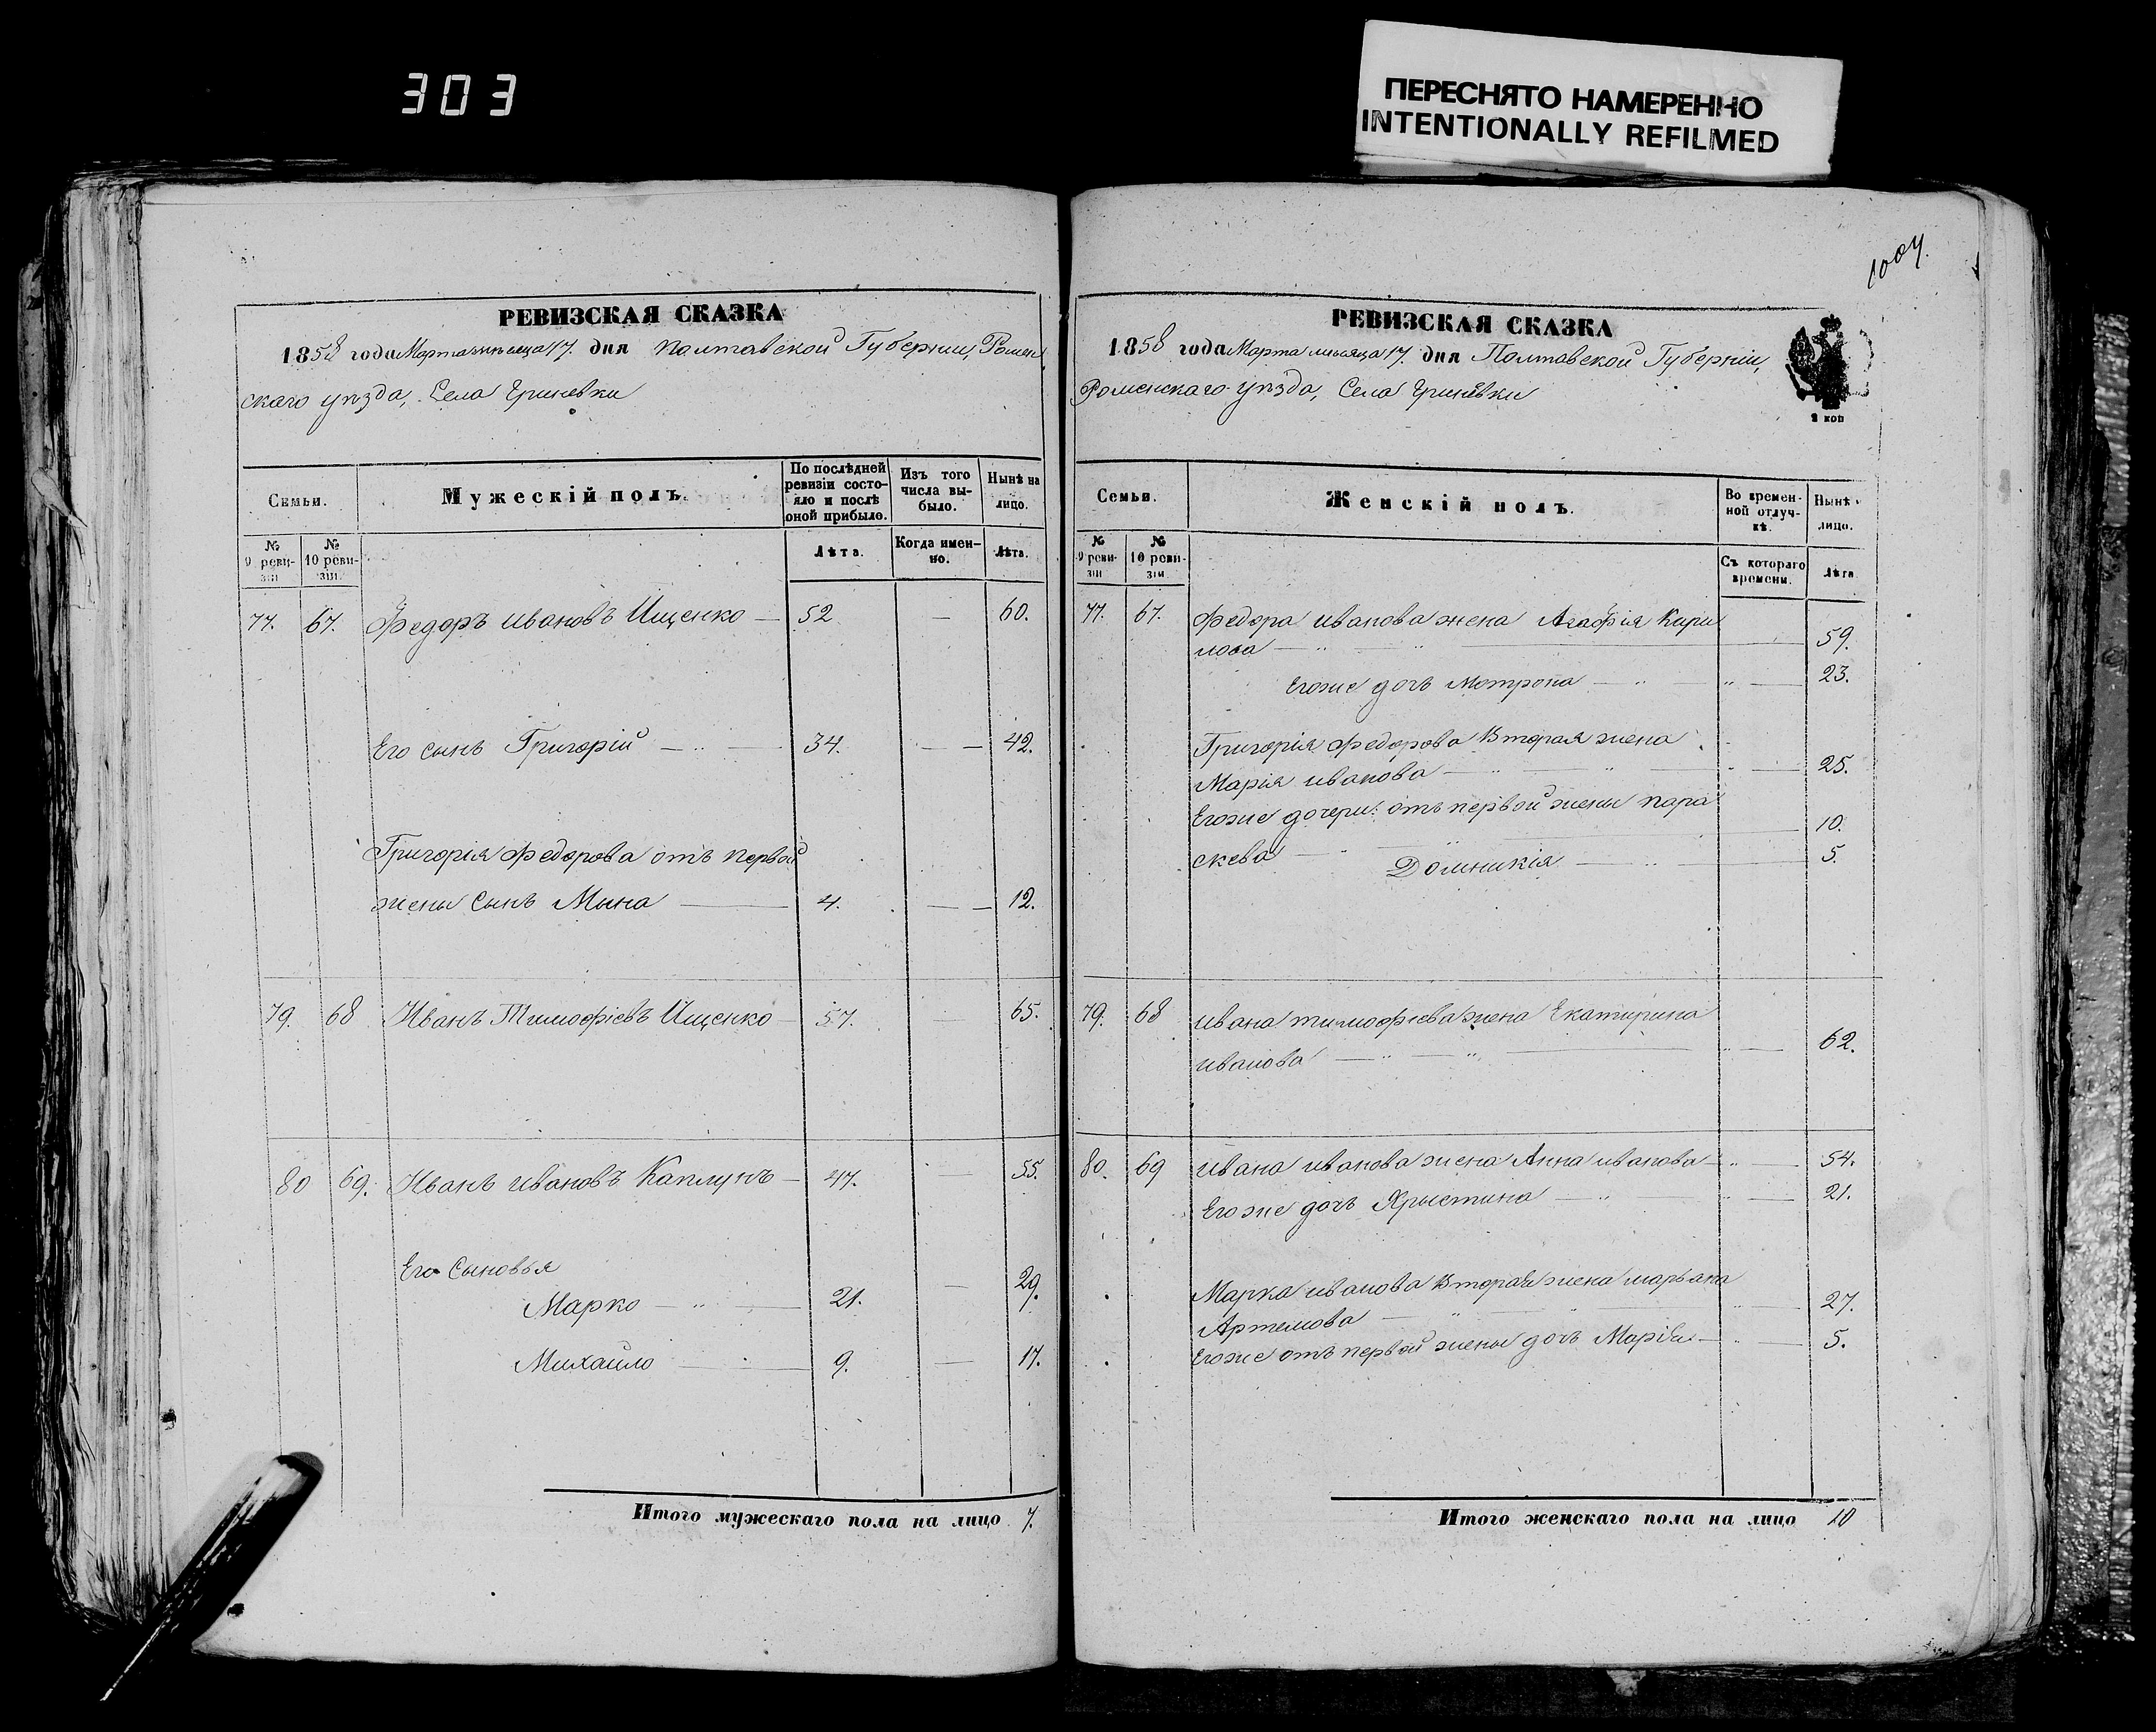 303
ПЕРЕСНЯТО НАМЕРЕННО
INTENTIONALLY REFILMED
РЕВИЗСКАЯ СКАЗКА
1858 года Марта мѣсяца 17. дня Полтавской Губернии, Ромен
скаго уѣзда, Села Гриневки
Семьи.
Мужескій полъ.
По послѣдней ревизіи состояло и послѣ оной прибыло.
Изъ того числа выбыло.
Нынѣ на лицо.
№ 9 ревизіи
№ 10 ревизіи.
Лѣта.
Когда именно.
Лѣта.
77. 67. Федоръ Ивановъ Ищенко — 52 — 60.
Его сынъ Григорій — 34. — 42.
Григорія Федорова отъ первой
жены сынъ Мина — 4. — 12.
79. 68 Иванъ Тимофіевъ Ищенко — 57. — 65.
80 69. Иванъ Ивановъ Каплунъ — 47. — 55.
Его сыновья
Марко — 21. — 29.
Михайло — 9. — 17.
Итого мужескаго пола на лицо 7.
1004.
РЕВИЗСКАЯ СКАЗКА
1858 года Марта мѣсяца 17. дня Полтавской Губерніи,
Роменскаго уѣзда, Села Гриневки
2 коп
Семьи.
Женскій полъ.
Во временной отлучкѣ.
Нынѣ лицо.
№ 9 ревизіи
№ 10 ревизіи
Съ котораго времени.
Лѣта
77. 67. Федора Иванова жена Агафія Кири
лова — 59.
Егоже дочь Мотрона — 23.
Григорія Федорова Вторая жена
Марія Иванова — 25.
Егоже дочери: отъ первой жены Пара
скева — 10.
Домникія — 5.
79. 68 Ивана Тимофіева жена Екатирина
Иванова — 62.
80. 69 Ивана Иванова жена Анна Иванова — 54.
Егоже дочь Христина — 21.
Марка Иванова Вторая жена Марьана
Артемова — 27.
Егоже отъ первой жены дочь Марія — 5.
Итого женскаго пола на лицо 10